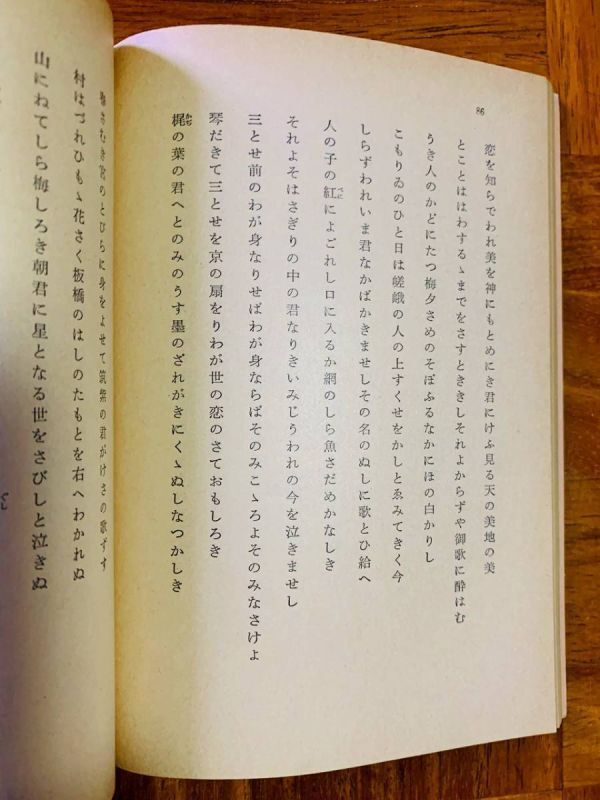 86
恋を知らでわれ美を神にもとめにき君にけふ見る天の美地の美
とことははわするゝまでをさすとききしそれよからずや御歌に酔はむ
うき人のかどにたつ梅夕さめのそぼふるなかにほの白かりし
こもりゐのひと日は嵯峨の人の上すくせをかしとゑみてきく今
しらずわれいま君なかばかきませしその名のぬしに歌とひ給へ
人の子の紅によごれし口に入るか網のしら魚さだめかなしき
べに
それよそはさぎりの中の君なりきいみじうわれの今を泣きませし
三とせ前のわが身なりせばわが身ならばそのみこゝろよそのみなさけよ
琴だきて三とせを京の扇をりわが世の恋のさておもしろき
梶の葉の君へとのみのうす墨のざれがきにくゝぬしなつかしき
かぢ
さむき宮のとびらに身をよせて筑紫の君がけさの歌ずす
村はづれひもゝ花さく板橋のはしのたもとを右へわかれぬ
山にねてしら梅しろき朝君に星となる世をさびしと泣きぬ